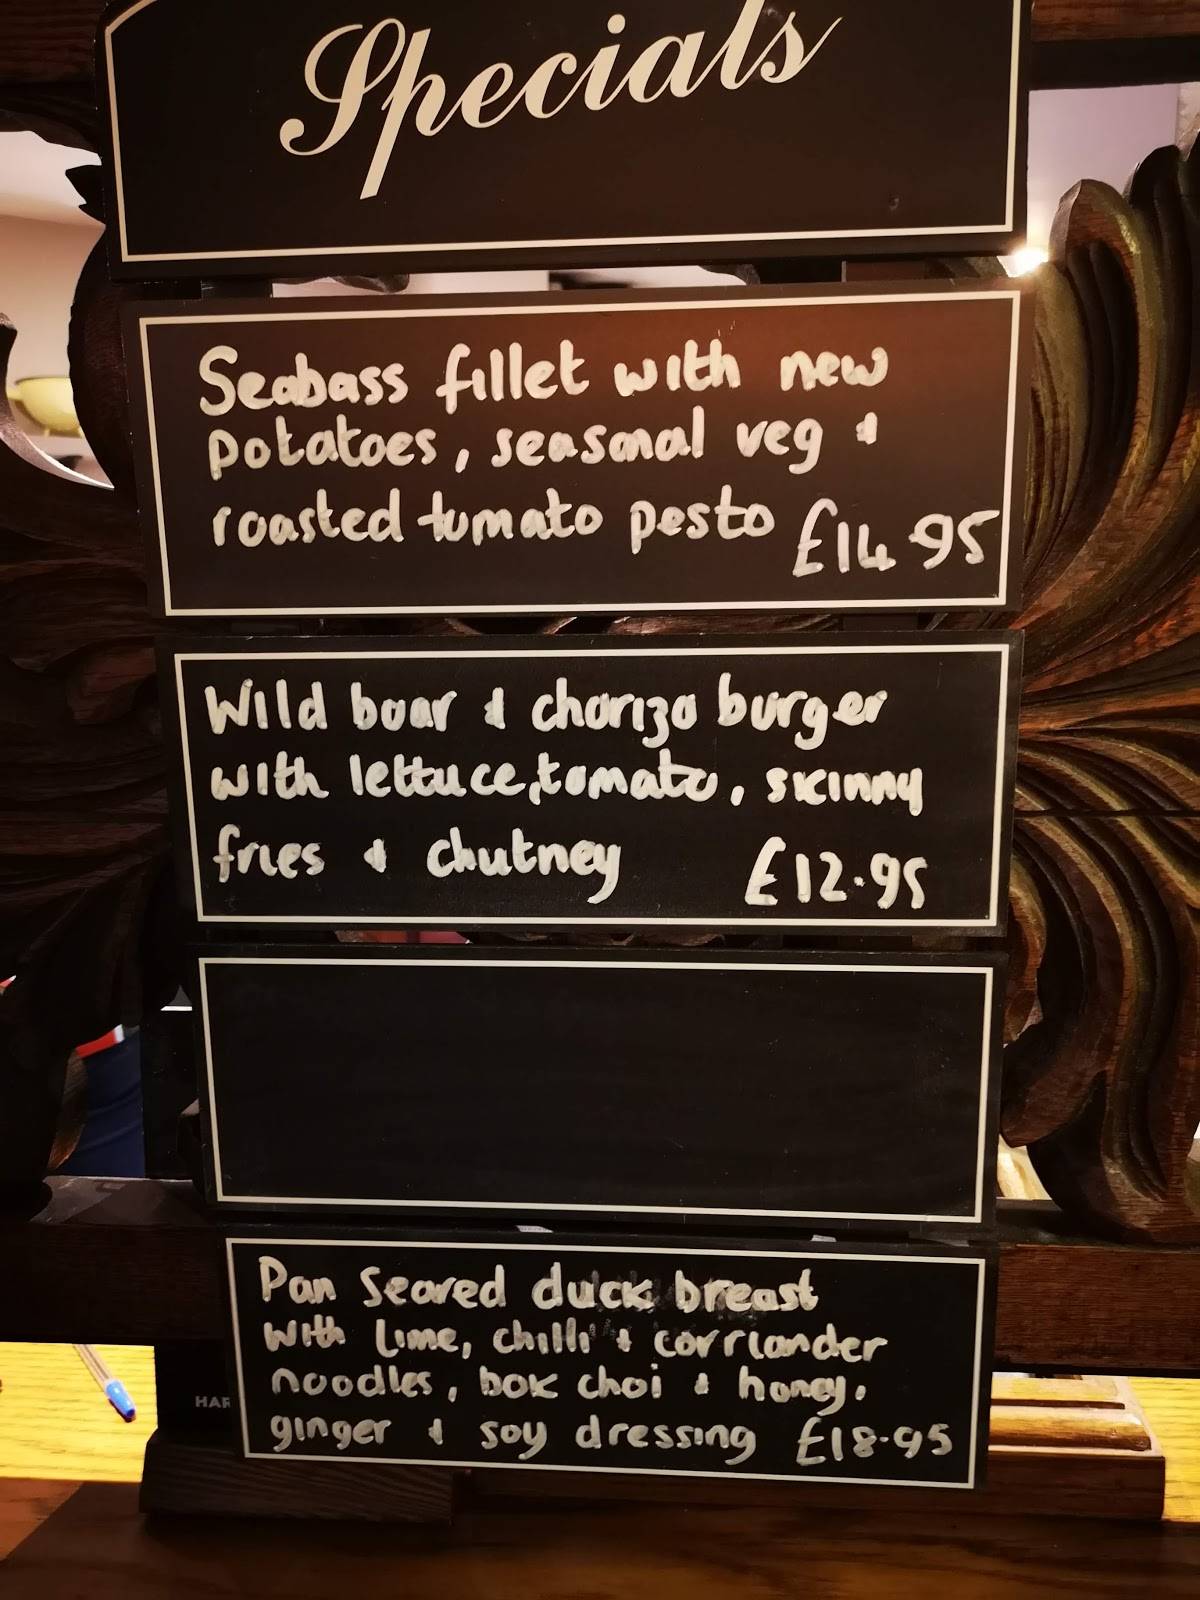 Specials
Seabass fillet with new
potatoes, seasonal veg &
roasted tomato pesto £14.95
Wild boar & chorizo burger
with lettuce, tomato, skinny
fries & chutney £12.95
Pan Seared duck breast
with lime, chilli & corriander
noodles, bok choi & honey,
ginger & soy dressing £18.95
HAR